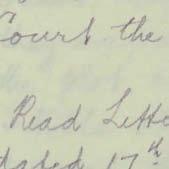 Court the
Read Lette
dated 17th